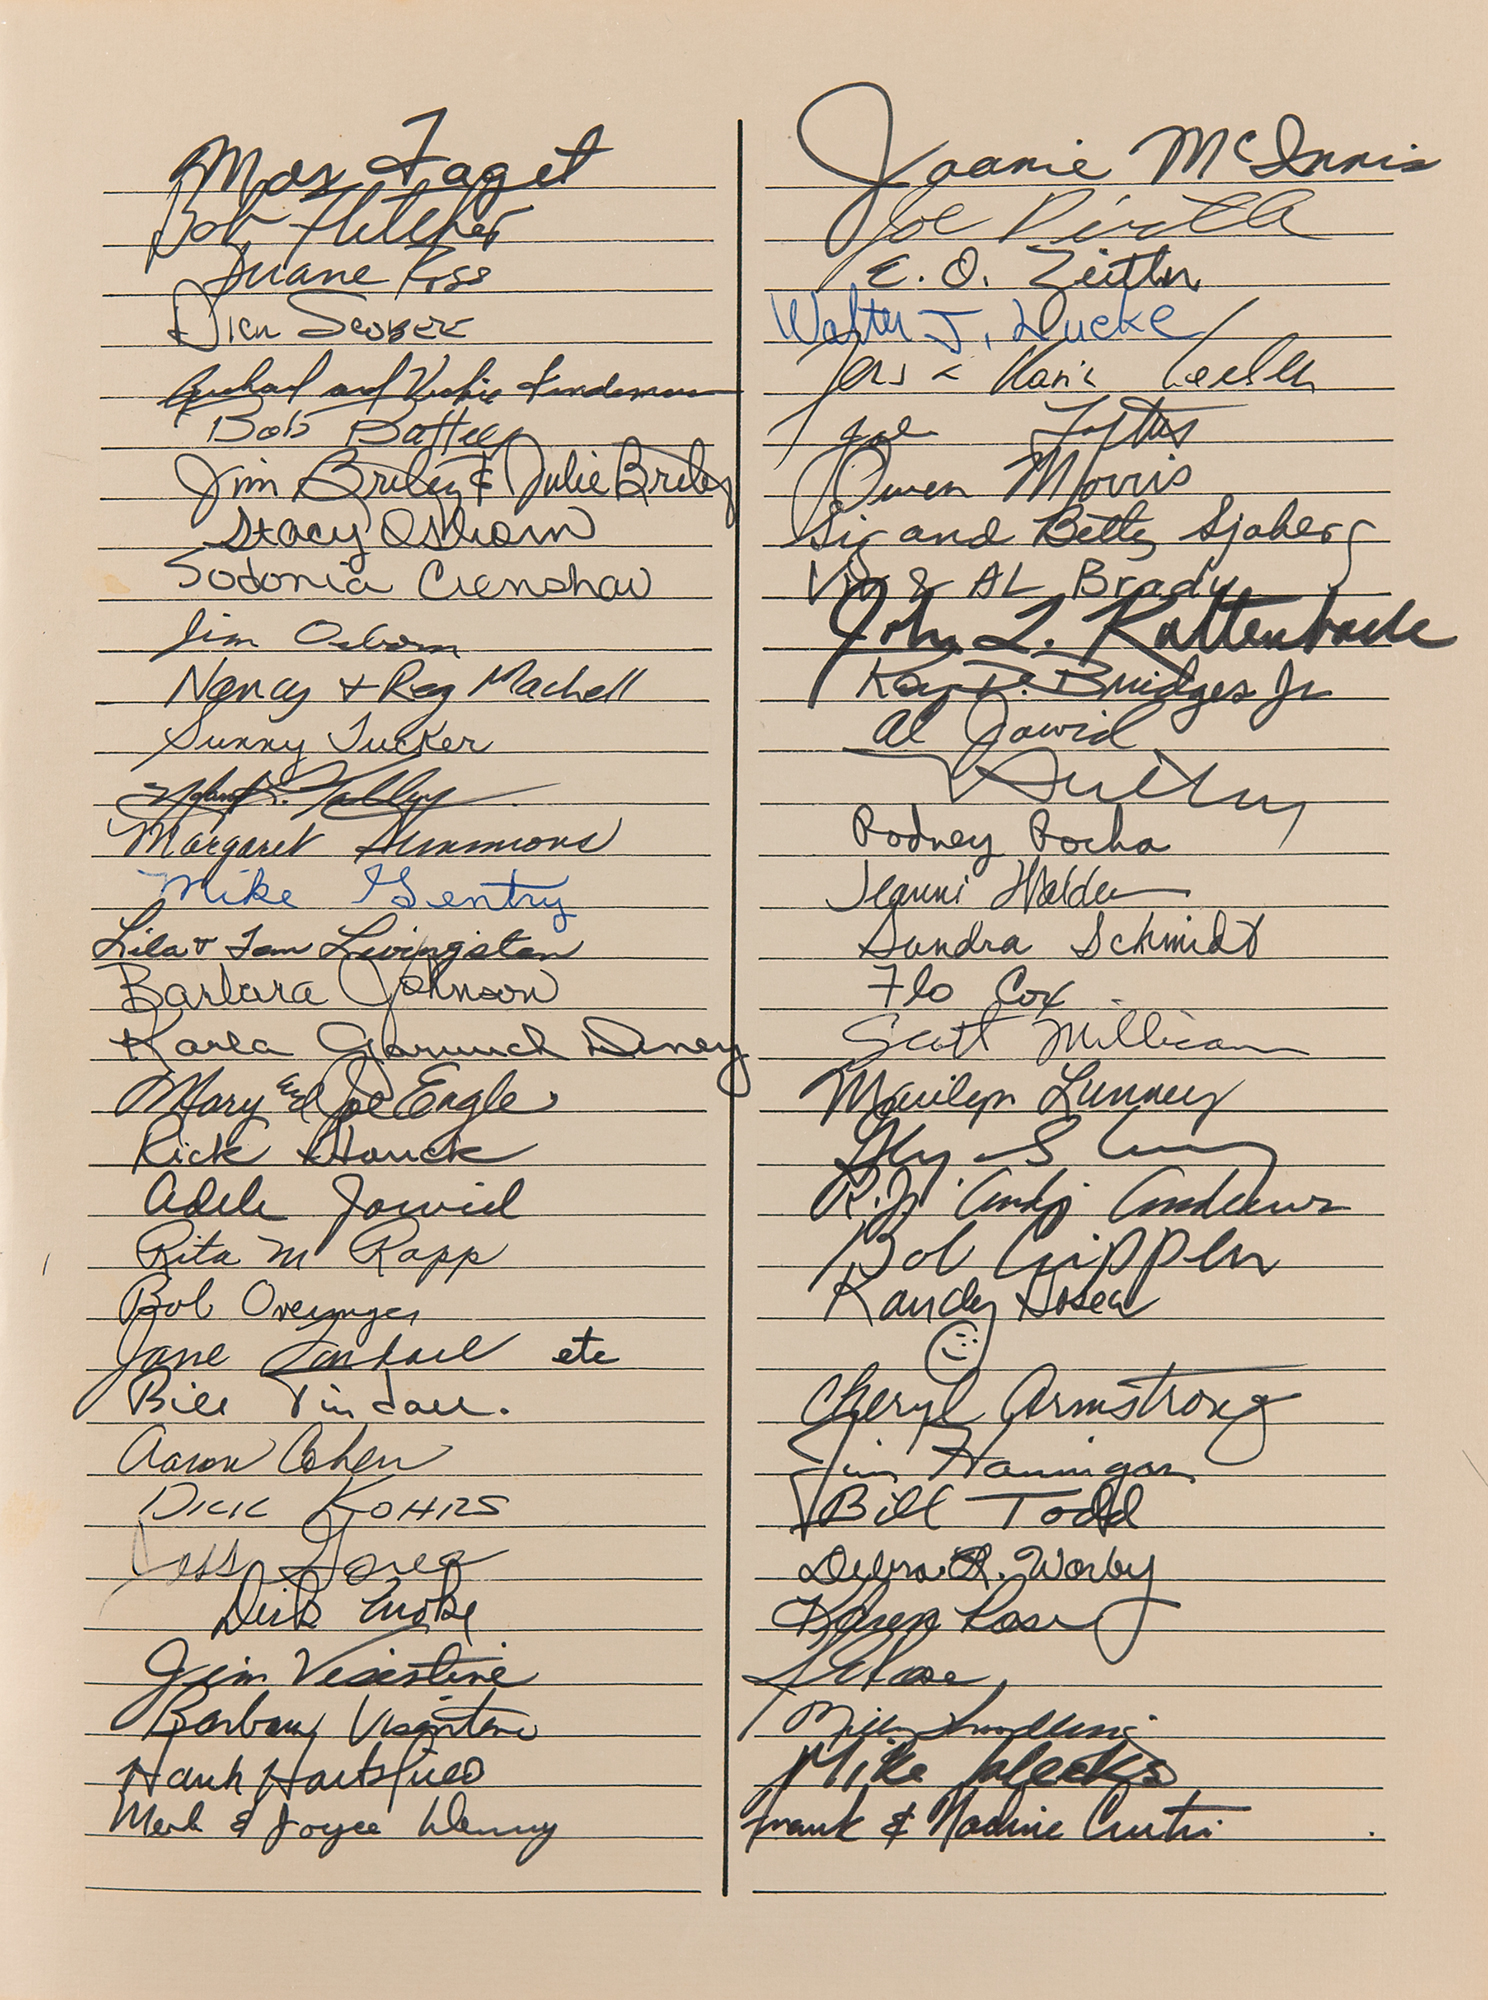 Max Faget
Bob Fletcher
Duane Ross
Dick
and Vickie Kindeman
Bob Battey
Jim Briley & Julie Briley
Stacy Osborn
Sodonia Crenshaw
Jim Osborn
Nancy + Reg Machell
Sunny Tucker
Margaret Simmons
Mike Gentry
Lila + Tom Livingston
Barbara Johnson
Karla Garnuch Dewey
Mary and Joe Engle
Rick Houck
Adele Jowid
Rita M Rapp
Bob Overmyer
Jane etc
Bill Tindall.
Aaron Cohen
Dick Kohrs
Jim Visentine
Barbary Visentine
Hank Hartsfield
Merk & Joyce Denny
Joanie McInnis
Joe
E. O. Zeitler
Walter J.
Joe Loftus
Owen Morris
Sig and Betty Sjoberg
& Al Brady
John L. Kaltenbach
Ray D. Bridges Jr
Al Jowid
Rodney Rocha
Jeanni Walden
Sandra Schmidt
Flo Cox
Scott Millican
Marilyn Lunney
R. J. "Andy" Andrews
Bob Crippen
Randy Hosea
Cheryl Armstrong
Jim Hannigan
Bill Todd
Debra R. Worby
Karen Rose
Mike
Frank & Nadine Curtis